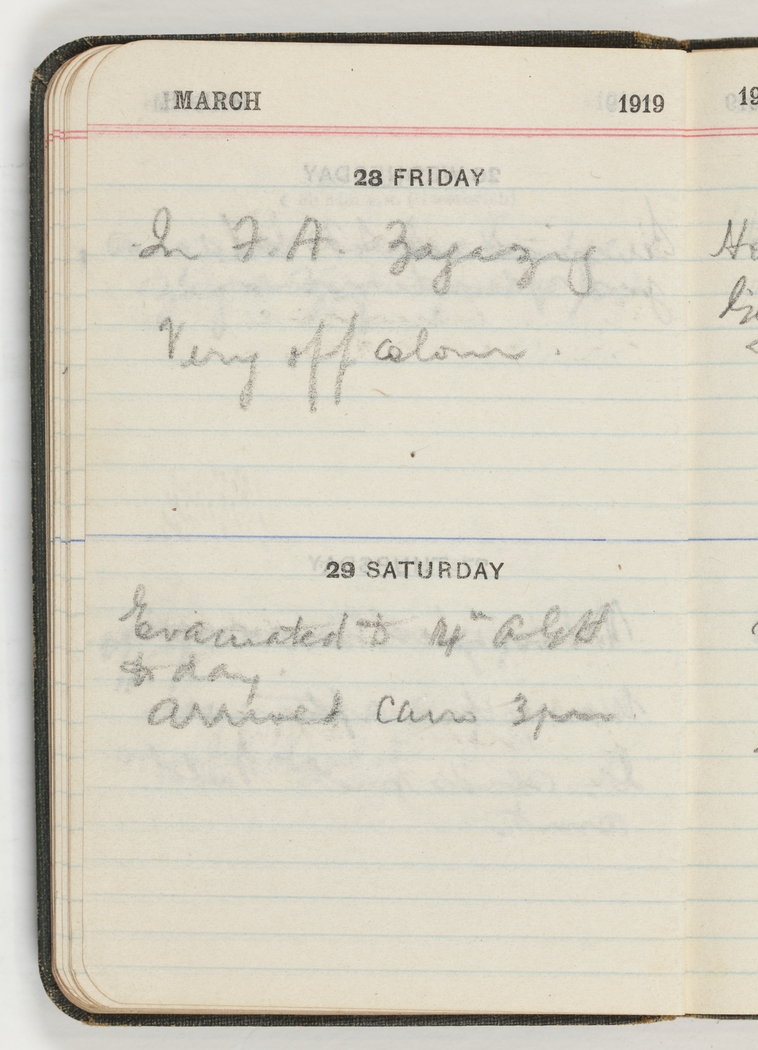 MARCH 1919
28 FRIDAY
In F.A. Zagazig
Very off colour.
29 SATURDAY
Evacuated to 14th AGH
to day.
Arrived Cairo 3pm.
19